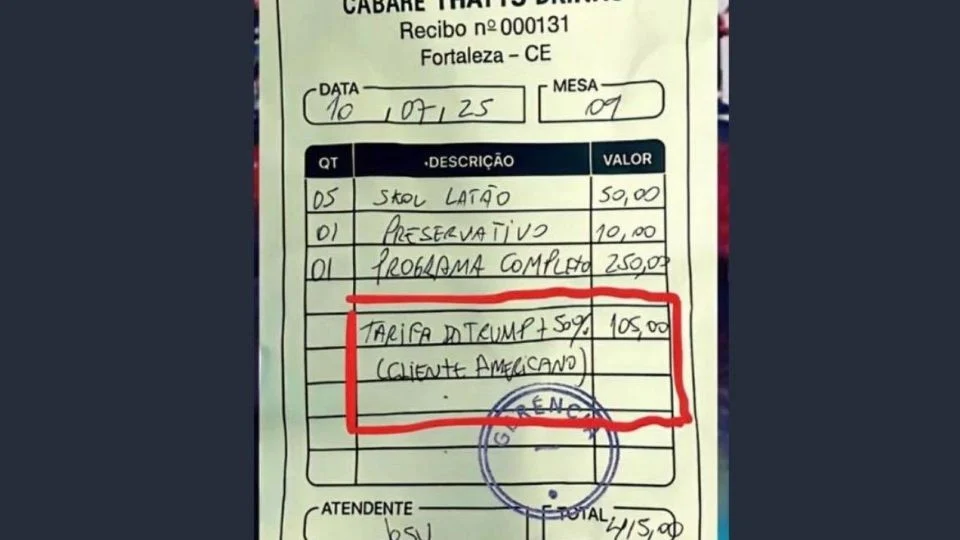 CABARÉ THATTS DRINKS
Recibo nº 000131
Fortaleza – CE
DATA
10 , 07 , 25
MESA
09
QT DESCRIÇÃO VALOR
05 SKOL LATÃO 50,00
01 PRESERVATIVO 10,00
01 PROGRAMA COMPLETO 250,00
TARIFA DO TRUMP + 50% 105,00
(CLIENTE AMERICANO)
GERÊNCIA
ATENDENTE
TOTAL
415,00